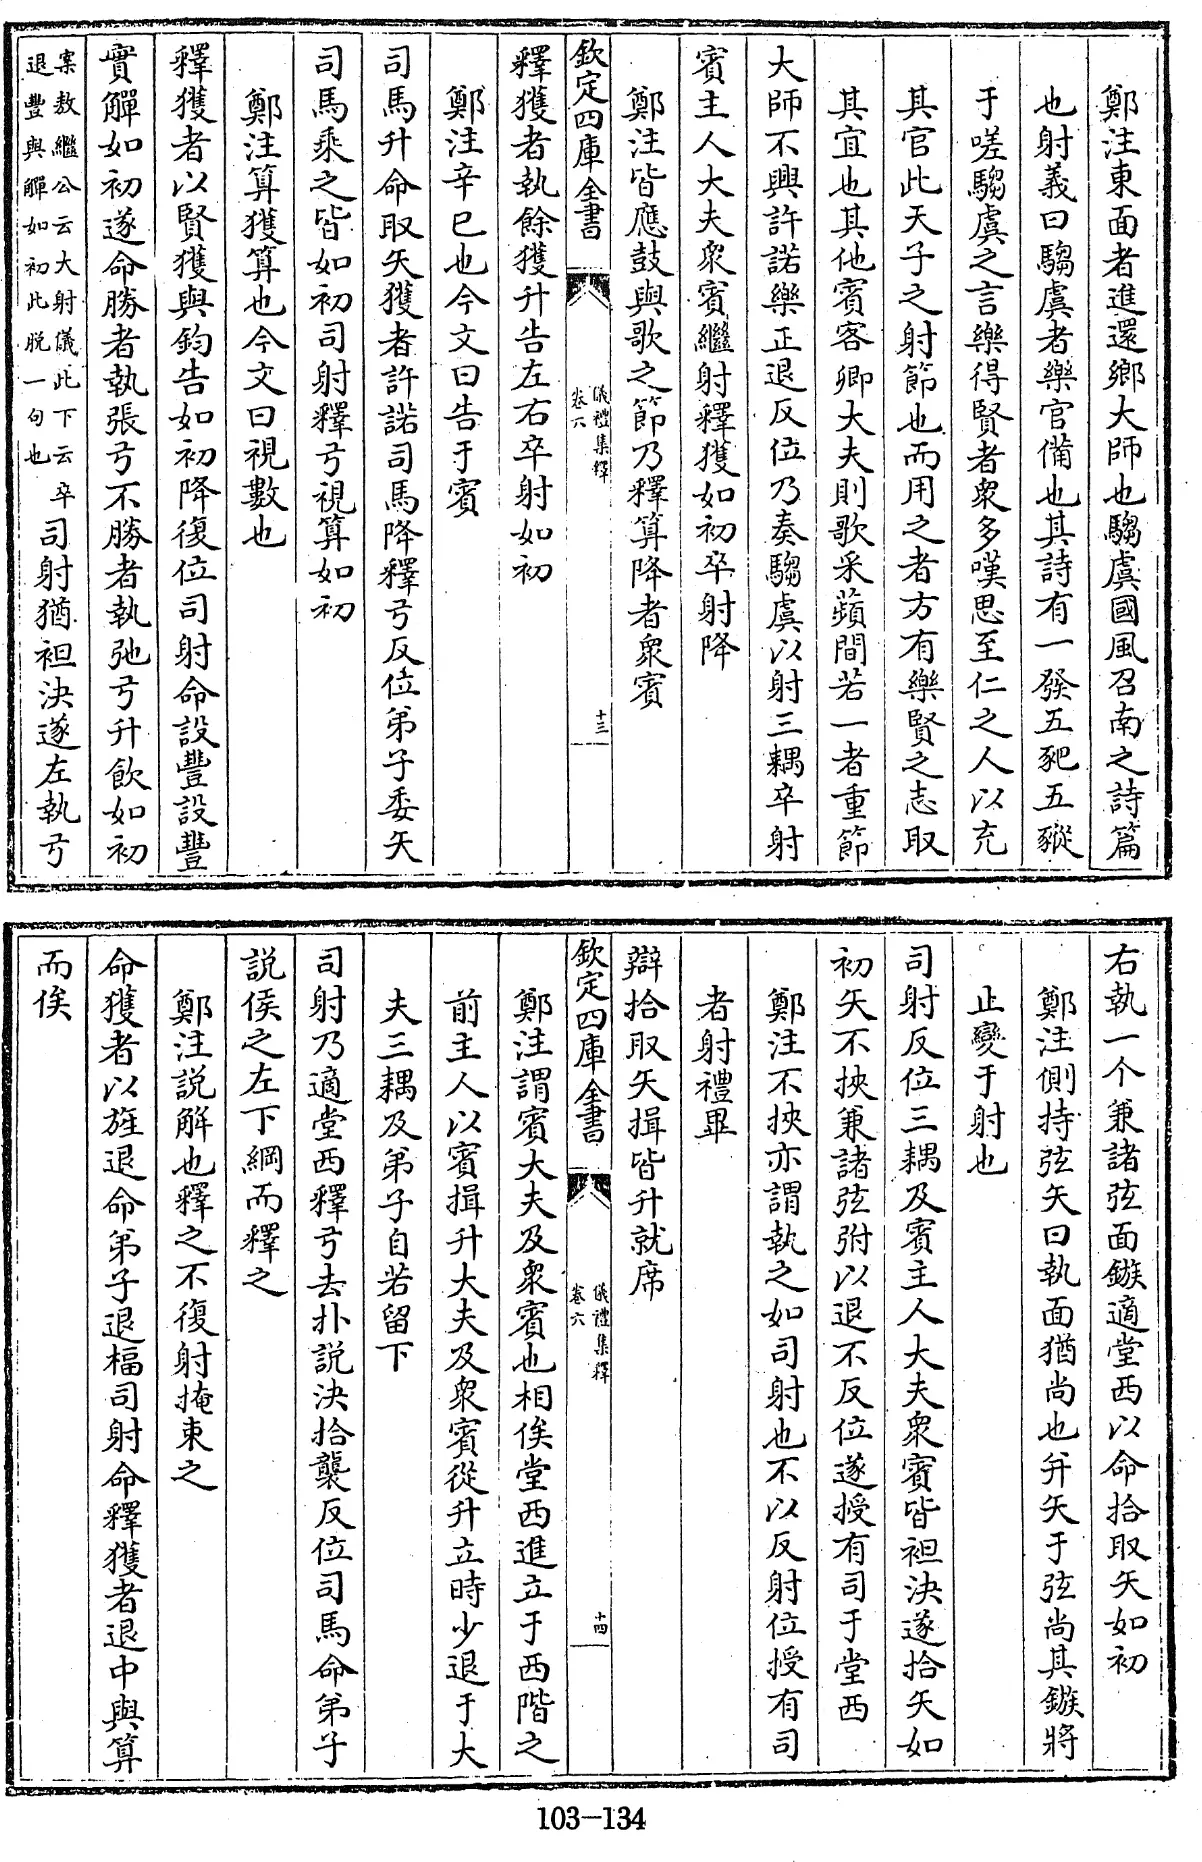 鄭注東面者進還鄉大師也騶虞國風召南之詩篇
也射義曰騶虞者樂官備也其詩有一發五豝五豵
于嗟騶虞之言樂得賢者衆多嘆思至仁之人以充
其官此天子之射節也而用之者方有樂賢之志取
其宜也其他賓客卿大夫則歌采蘋間若一者重節
大師不興許諾樂正退反位乃奏騶虞以射三耦卒射
賓主人大夫衆賓繼射釋獲如初卒射降
鄭注皆應鼓與歌之節乃釋算降者衆賓
欽定四庫全書
儀禮集釋
卷六
十三
釋獲者執餘獲升告左右卒射如初
鄭注辛巳也今文曰告于賓
司馬升命取矢獲者許諾司馬降釋弓反位弟子委矢
司馬乘之皆如初司射釋弓視算如初
鄭注算獲算也今文曰視數也
釋獲者以賢獲與鈞告如初降復位司射命設豐設豐
實觶如初遂命勝者執張弓不勝者執弛弓升飲如初
案敖繼公云大射儀此下云卒
退豐與觶如初此脱一句也
司射猶袒決遂左執弓
右執一个兼諸弦面鏃適堂西以命拾取矢如初
鄭注側持弦矢曰執面猶尚也并矢于弦尚其鏃將
止變于射也
司射反位三耦及賓主人大夫衆賓皆袒決遂拾矢如
初矢不挾兼諸弦弣以退不反位遂授有司于堂西
鄭注不挾亦謂執之如司射也不以反射位授有司
者射禮畢
辯拾取矢揖皆升就席
欽定四庫全書
儀禮集釋
卷六
十四
鄭注謂賓大夫及衆賓也相俟堂西進立于西階之
前主人以賓揖升大夫及衆賓從升立時少退于大
夫三耦及弟子自若留下
司射乃適堂西釋弓去扑說決拾襲反位司馬命弟子
說侯之左下綱而釋之
鄭注說解也釋之不復射掩束之
命獲者以旌退命弟子退楅司射命釋獲者退中與算
而俟
103-134